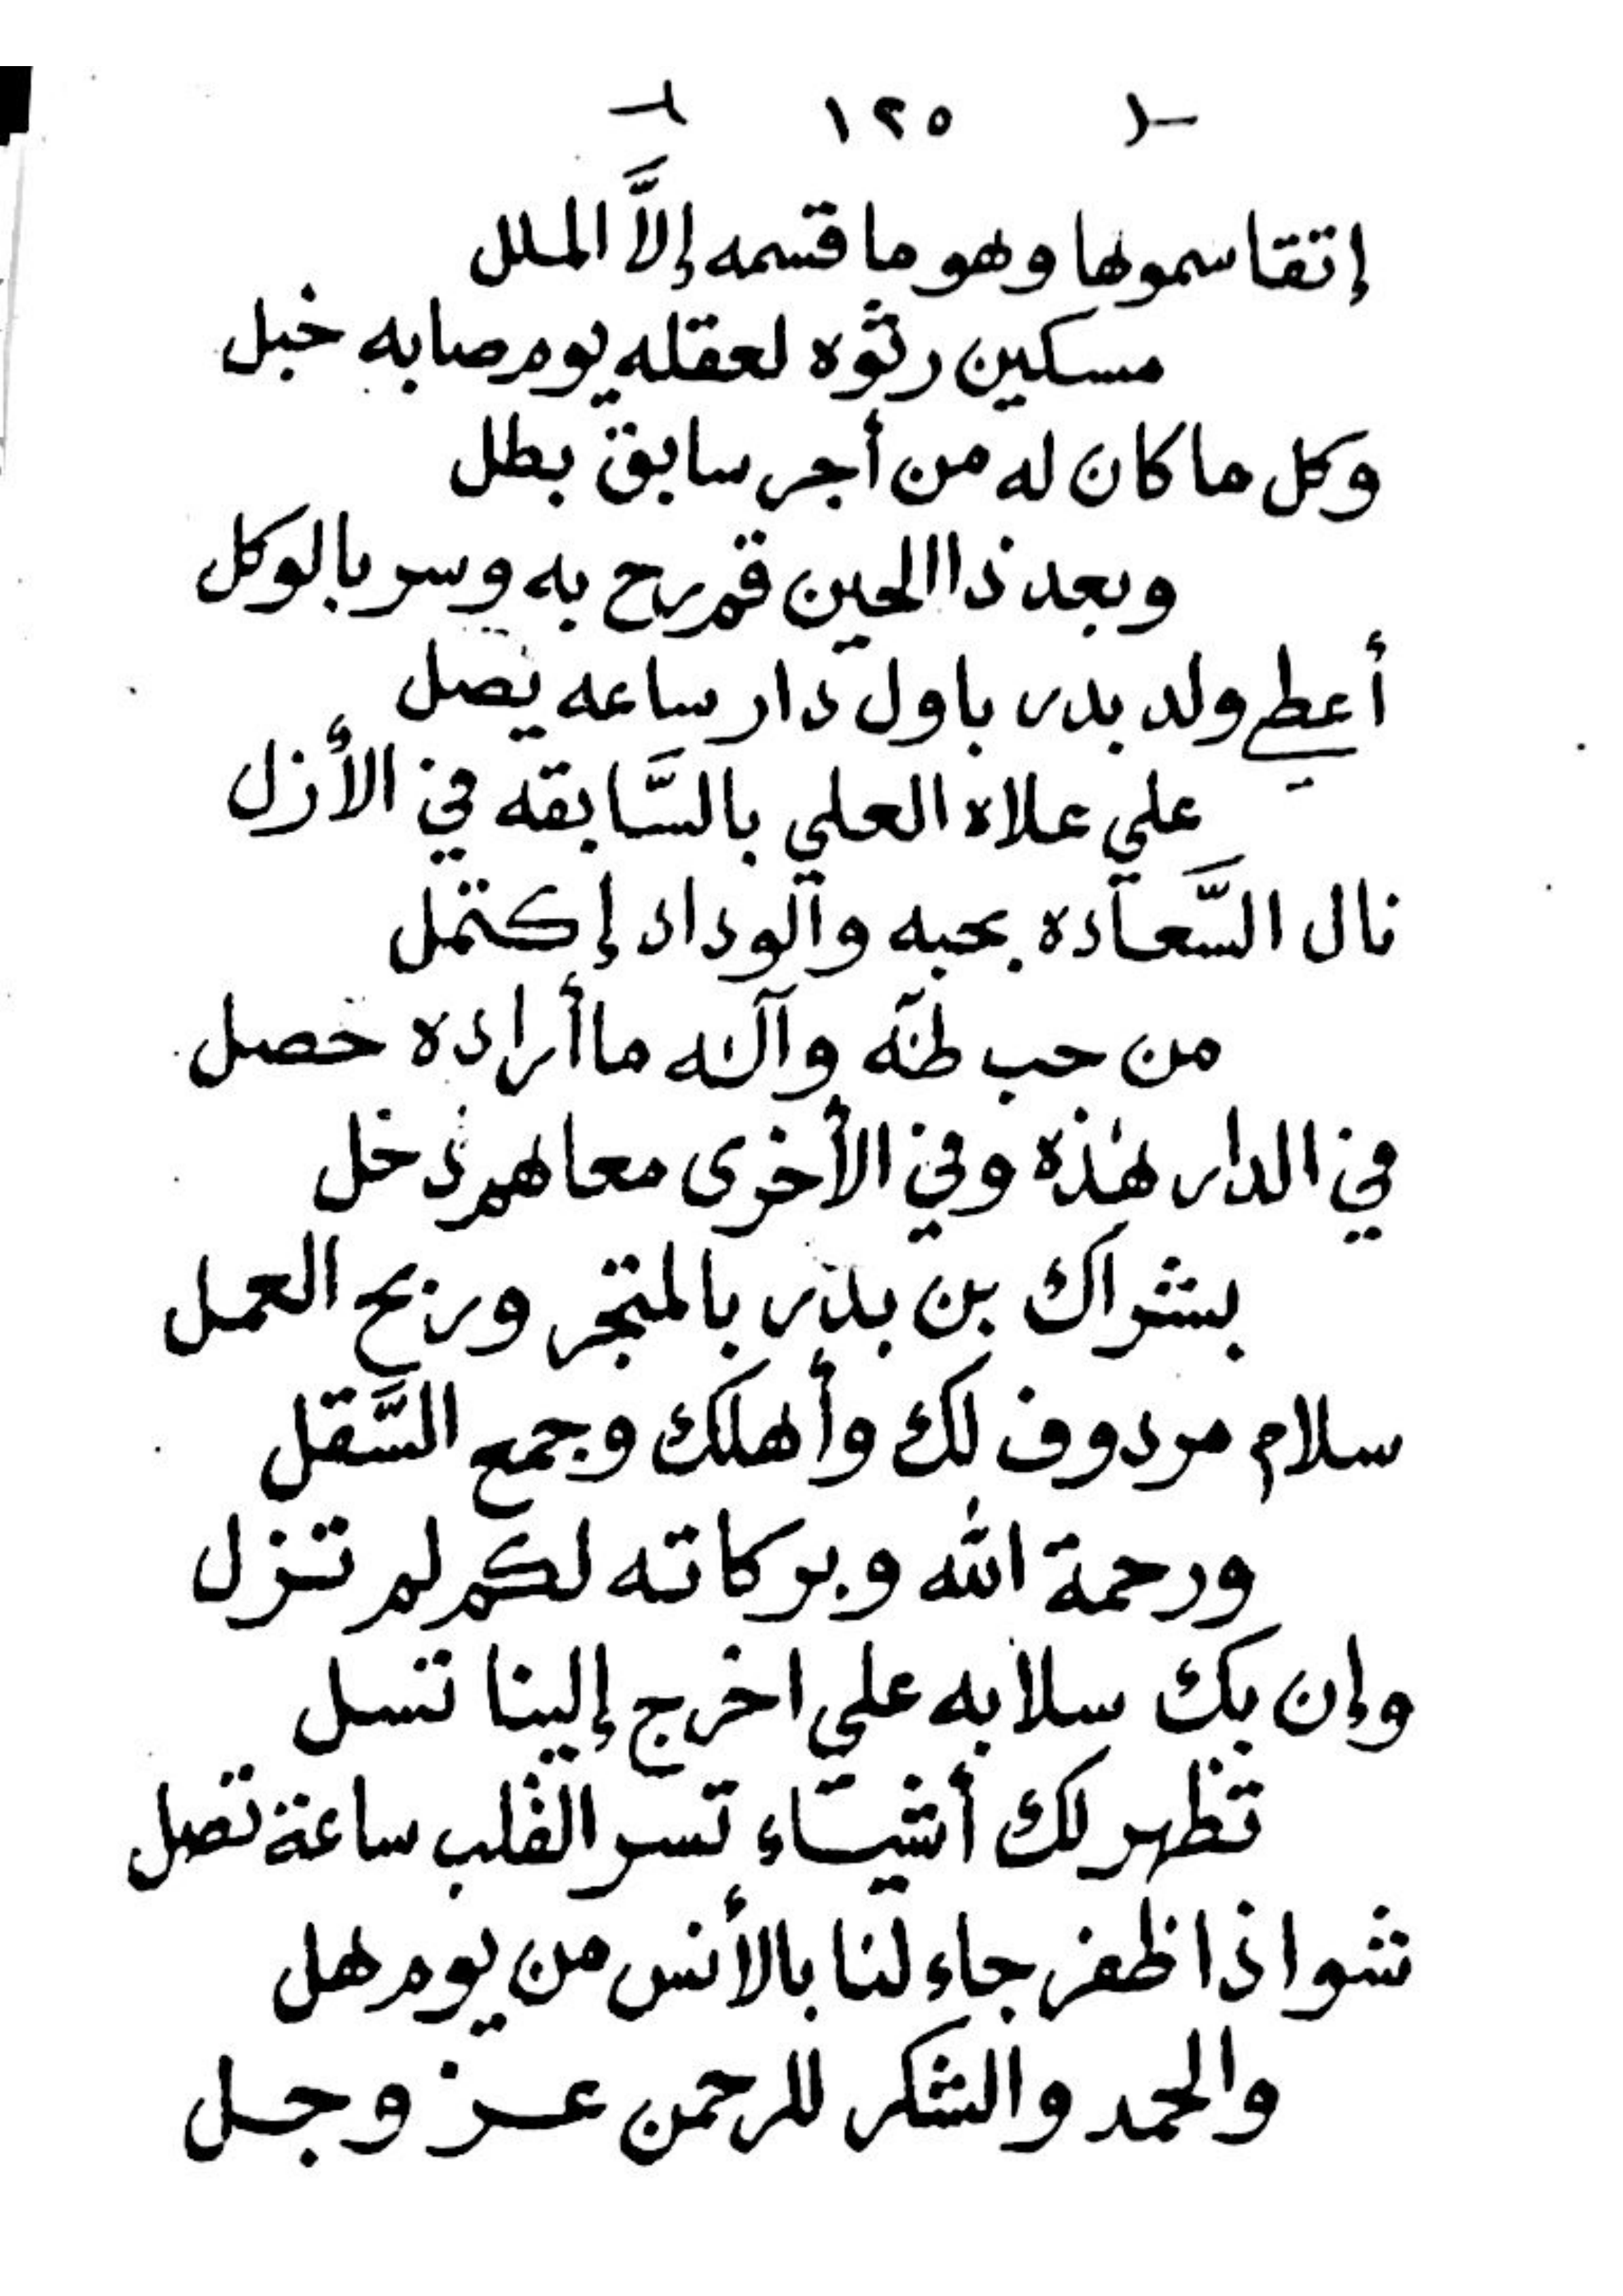 ١٢٥
إتقاسموها وهو ما قسمه إلاَّ الملل
مسكين رثوه لعقله يوم صابه خبل
وكل ما كان له من أجر سابق بطل
وبعد ذا الحين قم رح به وسر بالوكل
أعطي ولد بدر باول دار ساعه يصل
علي علاه العلي بالسَّابقه في الأزل
نال السَّعاده بحبه والوداد إكتمل
من حب طه وآله ما أراده حصل
في الدار هذه وفي الأخرى معاهم دخل
بشراك بن بدر بالمتجر وربح العمل
سلام مردوف لك وأهلك وجمع السَّقل
ورحمة الله وبركاته لكم لم تزل
وإن بك سلابه علي اخرج إلينا تسل
تظهر لك أشياء تسر القلب ساعة تصل
شوا ذا ظفر جاء لنا بالأنس من يوم هل
والحمد والشكر للرحمن عز وجل